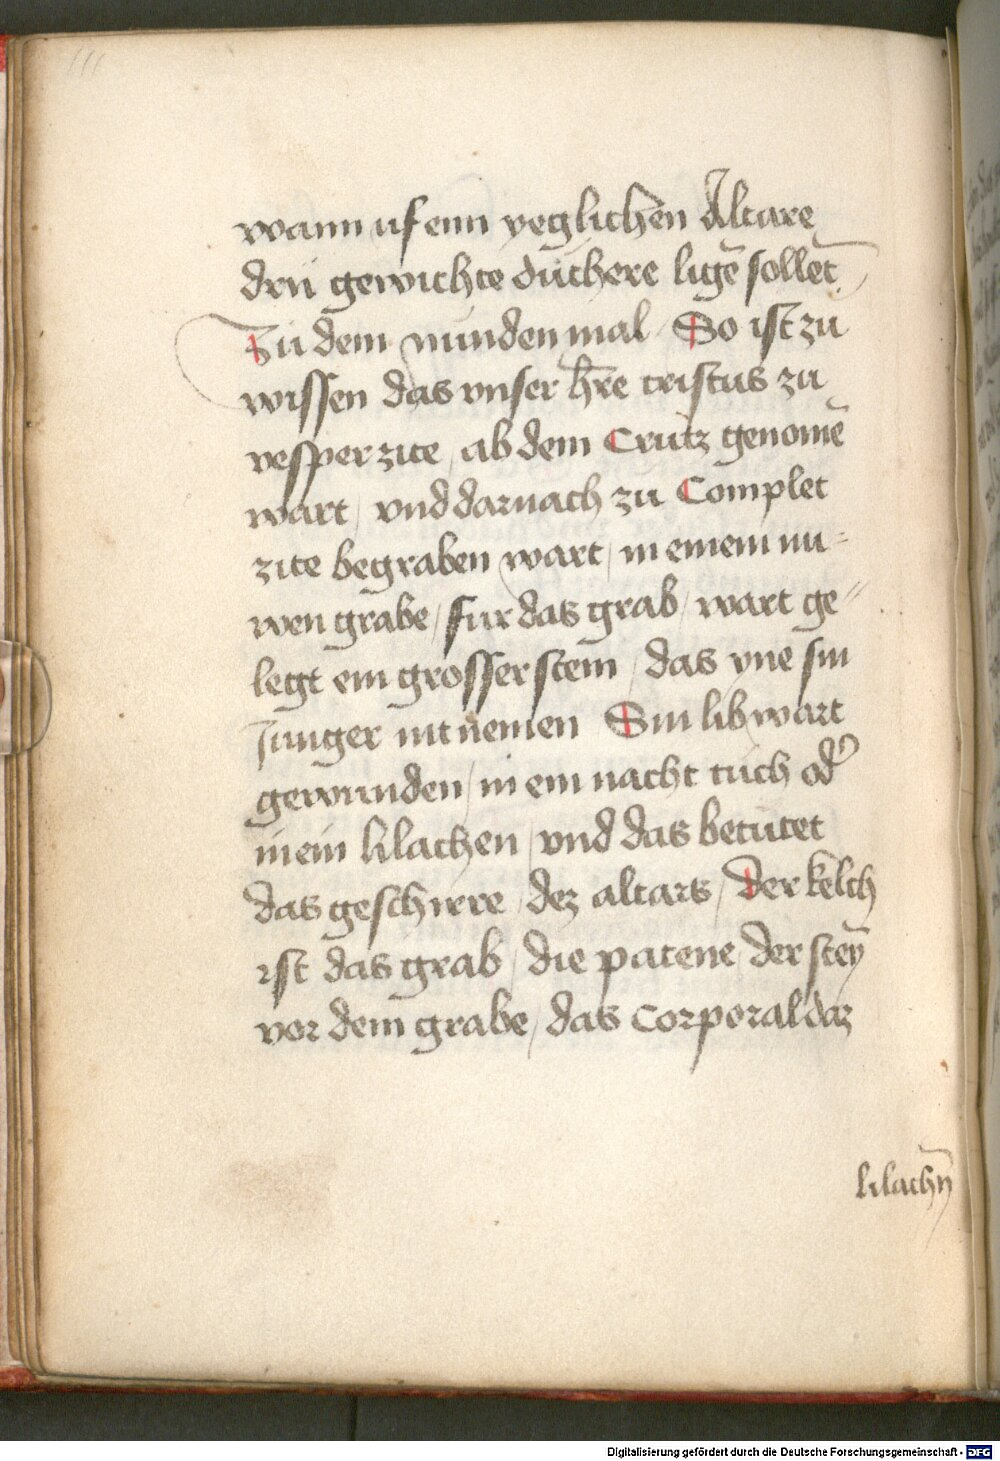 111
wann uf enn yeglichen Altare
drü gewichte düchere ligē sollēt
Zu dem nunden mal So ist zu
wissen das vnser hr̄e cristus zu
vesper zite / ab dem Crütz genomē
wart / vnd darnach zu Complet
zite begraben wart / in einem nu=
wen grabe / fur das grab / wart ge=
legt ein grosser stein / das yne sin
Junger nit nemen Sin lib wart
gewunden / in ein nacht tuch od̓
in ein lilachen / vnd das betutet
das geschirre / dez altars / Der kelch
ist das grab / die patene / der steȳ
vor dem grabe / das Corporal daz
lilachn̄
Digitalisierung gefördert durch die Deutsche Forschungsgemeinschaft - DFG